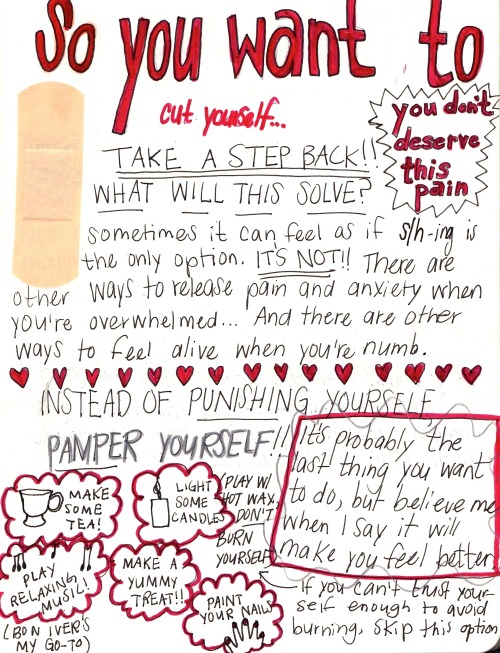 So you want to
cut yourself...
you don't
deserve
this
pain
TAKE A STEP BACK!!
WHAT WILL THIS SOLVE?
sometimes it can feel as if s/h-ing is
the only option. IT'S NOT!! There are
other ways to release pain and anxiety when
you're overwhelmed... And there are other
ways to feel alive when you're numb.
INSTEAD OF PUNISHING YOURSELF,
PAMPER YOURSELF!!
It's probably the
last thing you want
to do, but believe me
when I say it will
make you feel better
MAKE
SOME
TEA!
LIGHT
SOME
CANDLES
PLAY W/
HOT WAX,
DON'T
BURN
YOURSELF
PLAY
RELAXING
MUSIC!
(BON IVER'S
MY GO-TO)
MAKE A
YUMMY
TREAT!!
PAINT
YOUR NAILS
If you can't trust your-
self enough to avoid
burning, skip this option